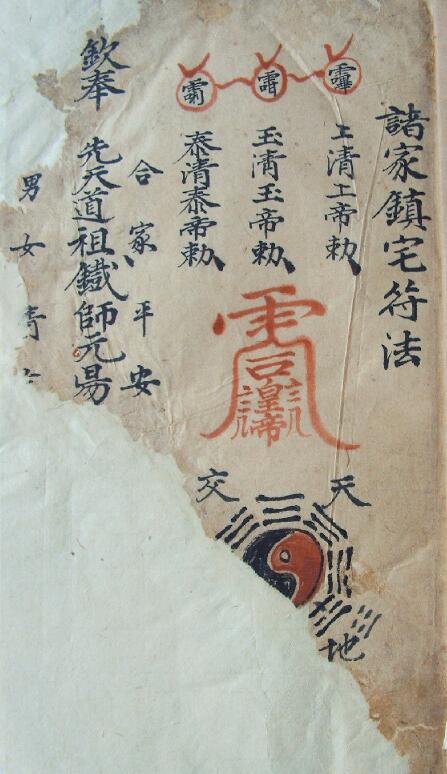 諸家鎮宅符法
上清上帝勅
玉清玉帝勅
泰清泰帝勅
皇帝
天
地
交
合家平安
欽奉 先天道祖鐵師元昜
男女清